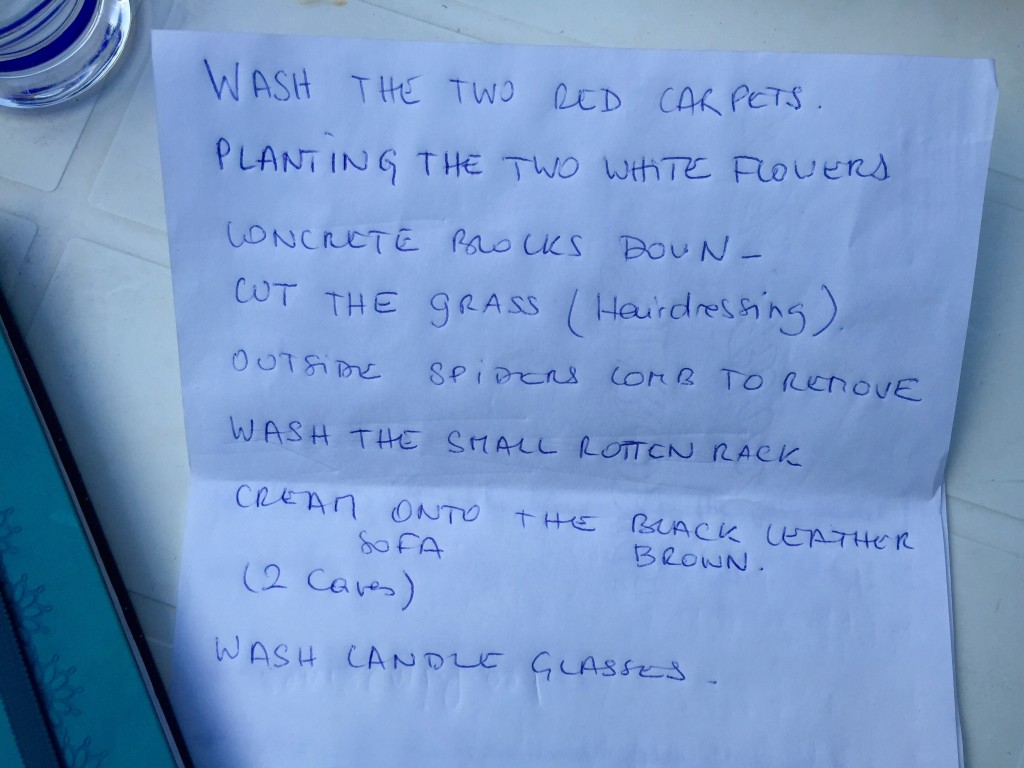 WASH THE TWO RED CARPETS.
PLANTING THE TWO WHITE FLOWERS
CONCRETE BLOCKS DOWN -
CUT THE GRASS (Hairdressing).
OUTSIDE SPIDERS COMB TO REMOVE
WASH THE SMALL ROTTEN RACK
CREAM ONTO THE BLACK LEATHER
SOFA BROWN.
(2 Caves)
WASH CANDLE GLASSES.